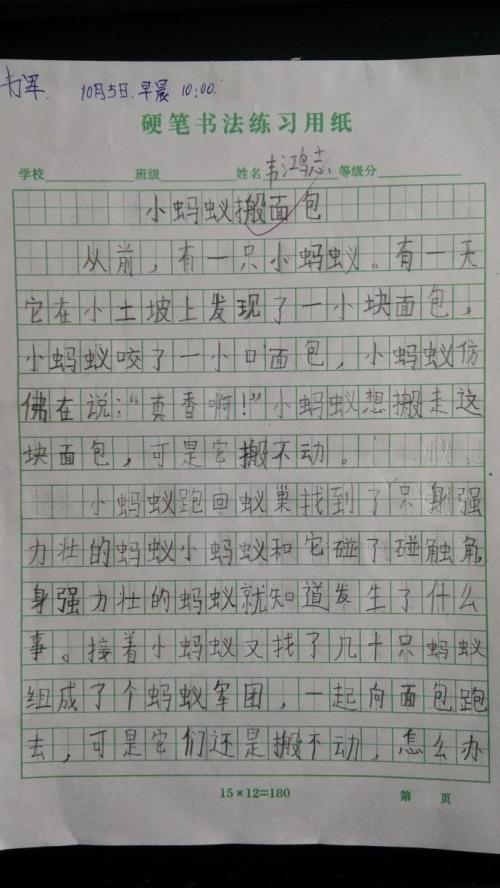 10月5日.早晨 10:00.
硬笔书法练习用纸
学校 班级 姓名 韦鸿志 等级分
小蚂蚁搬面包
从前，有一只小蚂蚁。有一天
它在小土坡上发现了一小块面包，
小蚂蚁咬了一小口面包，小蚂蚁仿
佛在说：“真香啊！”小蚂蚁想搬走这
块面包，可是它搬不动。
小蚂蚁跑回蚁巢找到了只身强
力壮的蚂蚁小蚂蚁和它碰了碰触角，
身强力壮的蚂蚁就知道发生了什么
事。接着小蚂蚁又找了几十只蚂蚁
组成了个蚂蚁军团，一起向面包跑
去，可是它们还是搬不动，怎么办
15×12=180
第 页